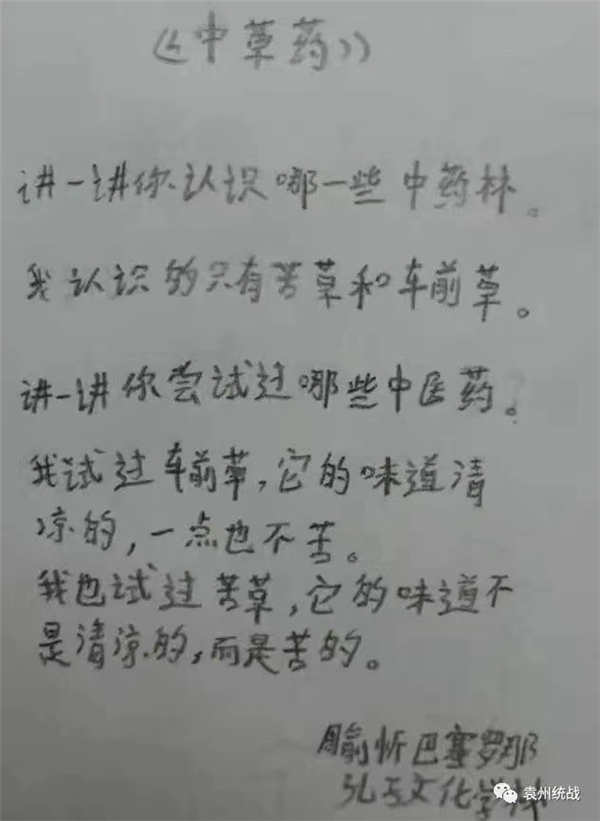 《中草药》
讲一讲你认识哪一些中药林。
我认识的只有苦草和车前草。
讲一讲你尝试过哪些中医药。
我试过车前草,它的味道清
凉的,一点也不苦。
我也试过苦草,它的味道不
是清凉的,而是苦的。
忻巴塞罗那
文化学
袁州统战